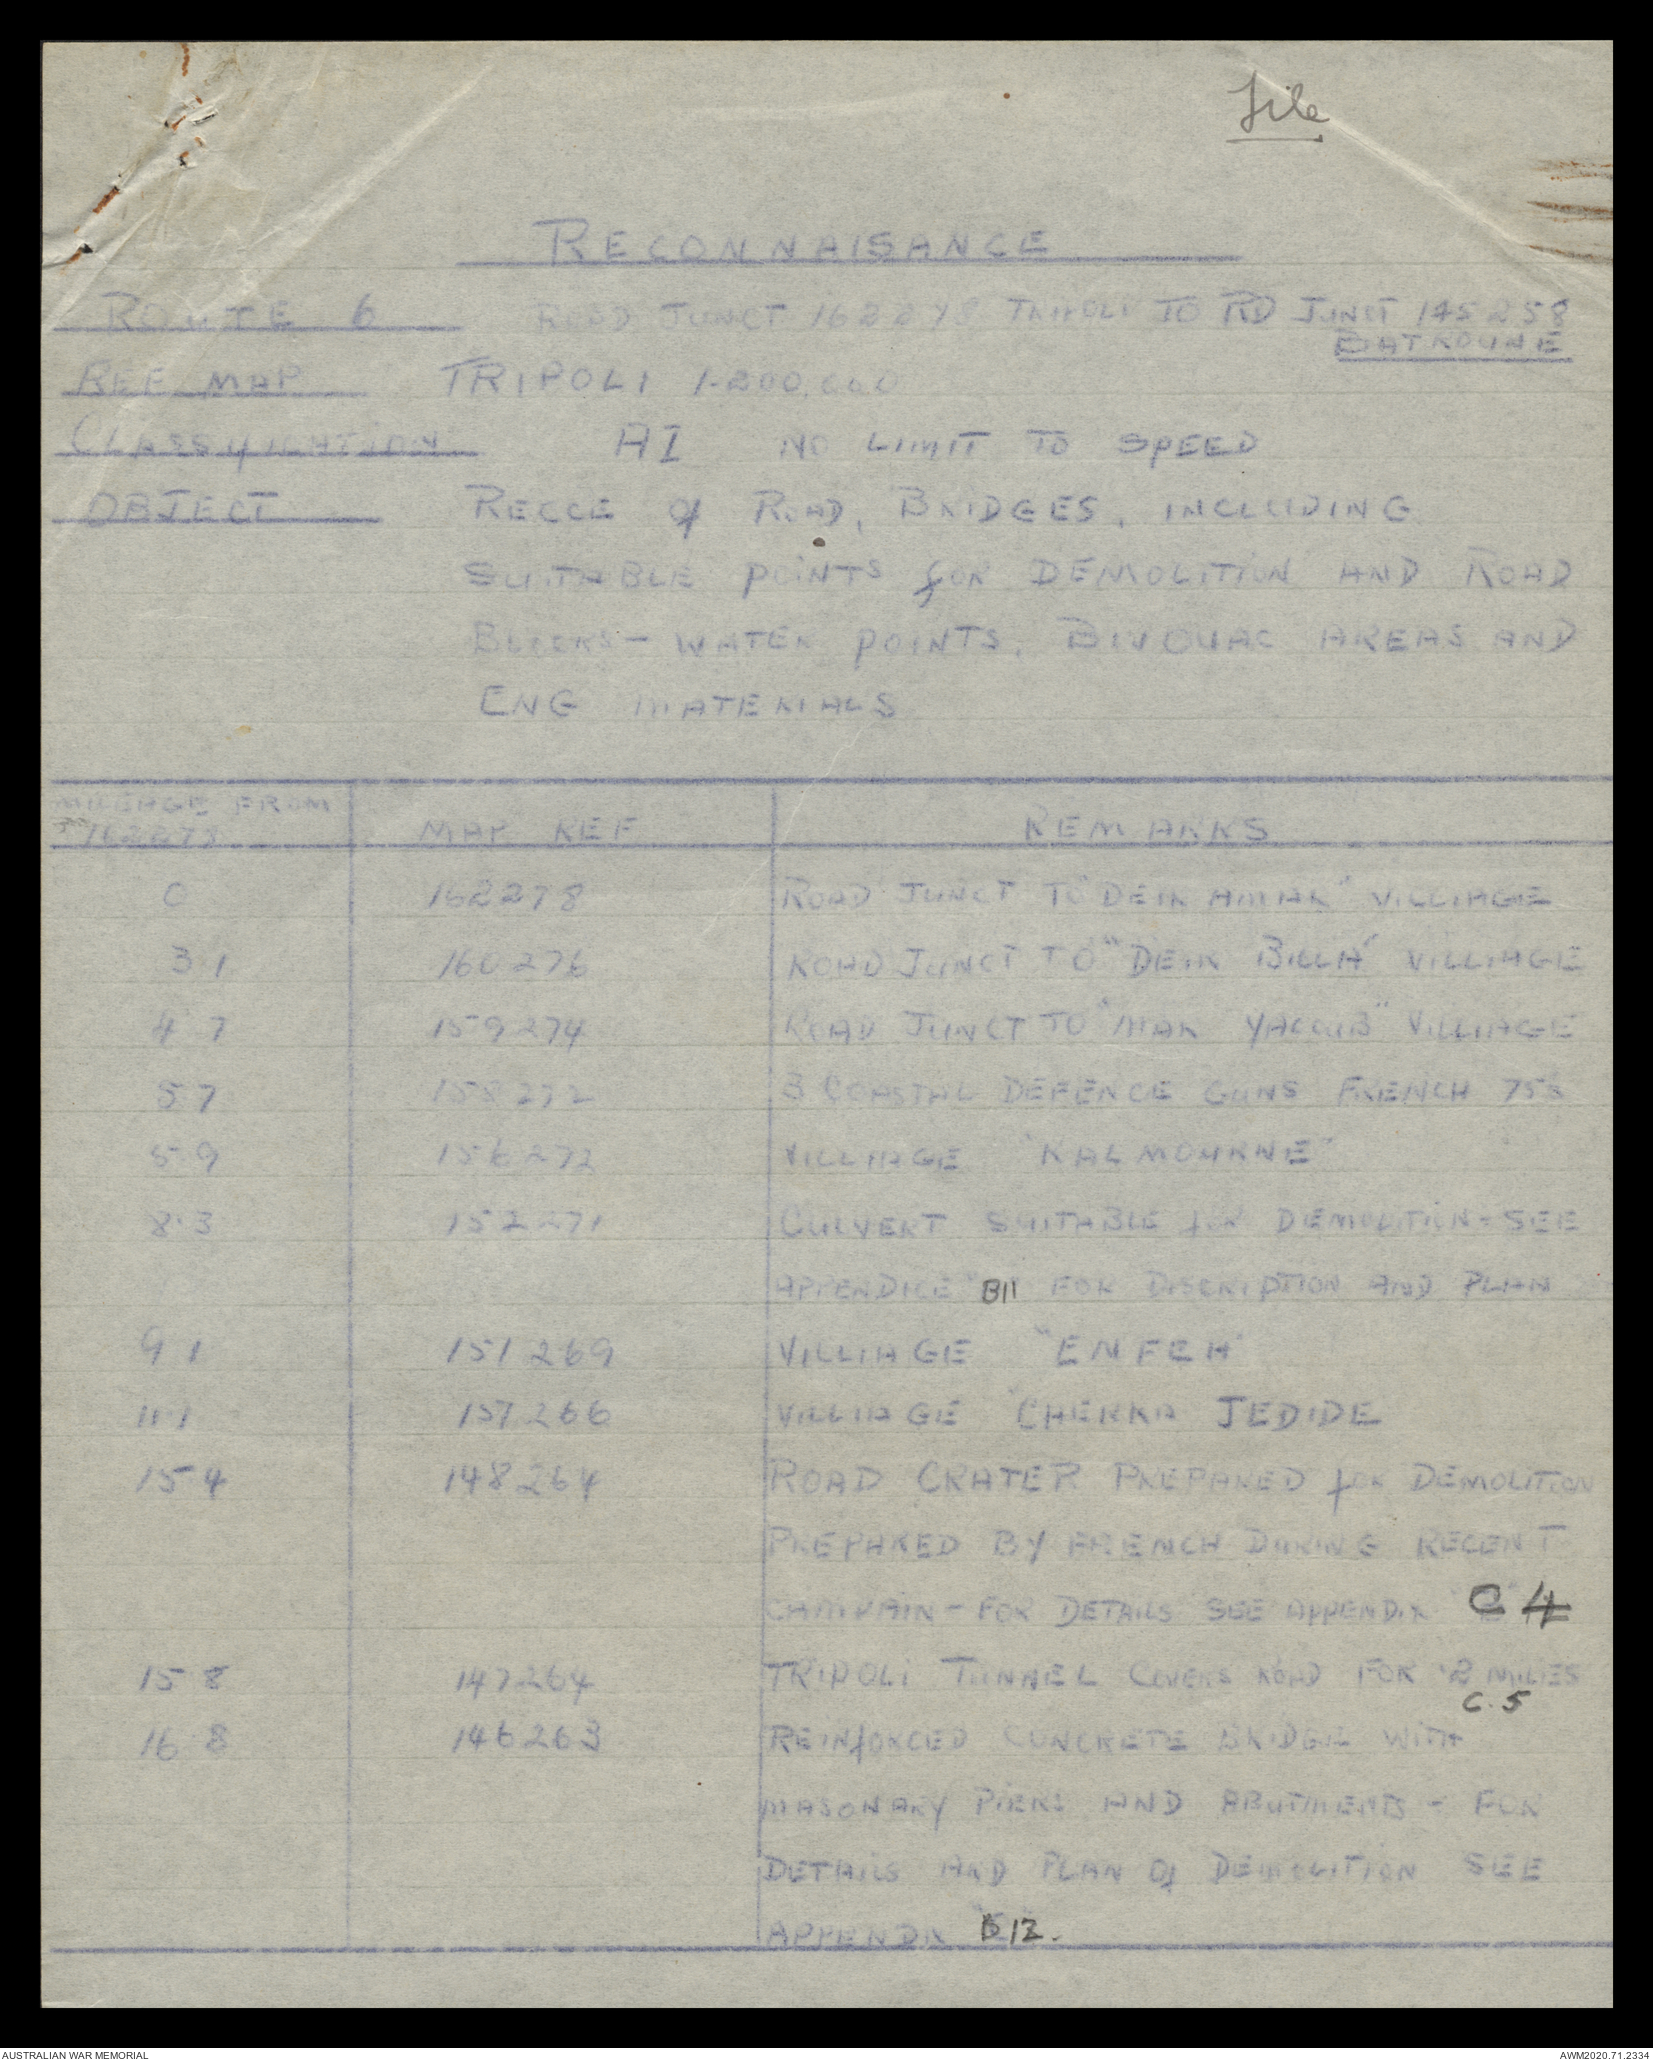 File
RECONNAISANCE
ROUTE 6 ROAD JUNCT 162278 TRIPOLI TO RD JUNCT 145258
BATROUNE
REF MAP TRIPOLI 1-200,000
CLASSIFICATION A1 NO LIMIT TO SPEED
OBJECT RECCE of ROAD, BRIDGES, INCLUDING
SUITABLE POINTS for DEMOLITION AND ROAD
BLOCKS - WATER POINTS, BIVOUAC AREAS AND
ENG MATERIALS
MILEAGE FROM
162278 MAP REF REMARKS
0 162278 ROAD JUNCT TO "DEIR AMAR" VILLIAGE
3.1 160276 ROAD JUNCT TO "DEIR BILLA" VILLIAGE
4.7 159274 ROAD JUNCT TO "MAR YACOUB" VILLIAGE
5.7 158272 3 COASTAL DEFENCE GUNS FRENCH 75s
5.9 156272 VILLIAGE "KALMOURNE"
8.3 152271 CULVERT SUITABLE for DEMOLITION - SEE
APPENDICE B11 FOR DISCRIPTION AND PLAN
9.1 151269 VILLIAGE "ENFEH"
11.1 157266 VILLIAGE "CHEKKA JEDIDE
15.4 148264 ROAD CRATER PREPARED for DEMOLITION
PREPARED BY FRENCH DURING RECENT
CAMPAIN - FOR DETAILS SEE APPENDIX C 4
15.8 147264 TRIPOLI TUNNEL COVERS ROAD FOR .2 MILES
C.5
16.8 146263 REINFORCED CONCRETE BRIDGE WITH
MASONARY PIERS AND ABUTMENTS - FOR
DETAILS AND PLAN Of DEMOLITION SEE
APPENDIX B12.
AUSTRALIAN WAR MEMORIAL AWM2020.71.2334